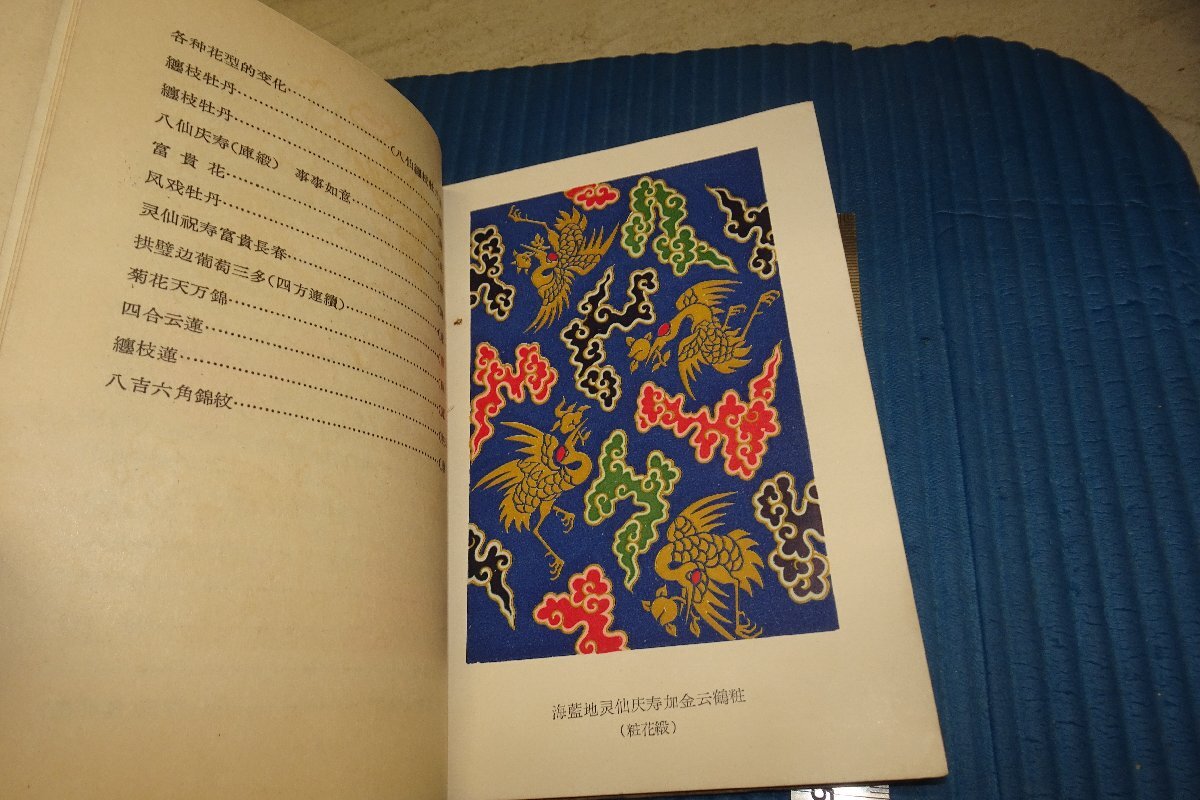 各种花型的变化
纏枝牡丹
纏枝牡丹
八仙庆寿(庫緞) 事事如意
富貴花
凤戏牡丹
灵仙祝寿富貴長春
拱璧边葡萄三多(四方連續)
菊花天万錦
四合云蓮
纏枝蓮
八吉六角錦紋
海藍地灵仙庆寿加金云鶴粧
(粧花緞)